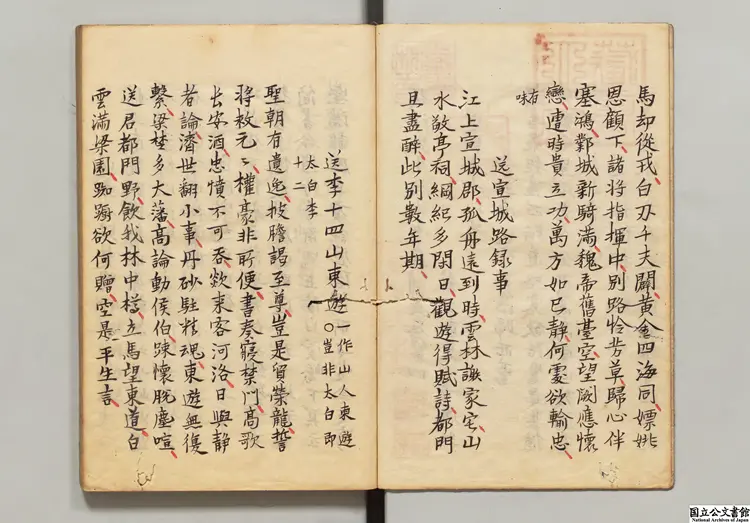 馬却從戎白刃千夫闢黄金四海同嫖姚
恩顧下諸将指揮中別路怜芳草歸心伴
塞鴻鄴城新騎滿魏帝舊臺空望闕應懷
戀遭時貴立功萬方如已静何處欲輸忠
有味
送宣城路録事
江上宣城郡孤舟遠到時雲林謝家宅山
水敬亭祠綱紀多閑日觀遊得賦詩都門
且盡醉此別數年期
送李十四山東遊一作山人東遊
〇豈非太白即
太白李
十二
聖朝有遺逸披膽謁至尊豈是貿榮寵誓
将救元〻權豪非所便書奏寝禁門高歌
長安酒忠憤不可吞欻来客河洛日與静
者論濟世翻小事丹砂駐精魂東遊無復
繫梁楚多大藩高論動侯伯踈懷脱塵喧
送君都門野飲我林中樽立馬望東道白
雲滿梁園踟蹰欲何贈空是平生言
国立公文書館
National Archives of Japan